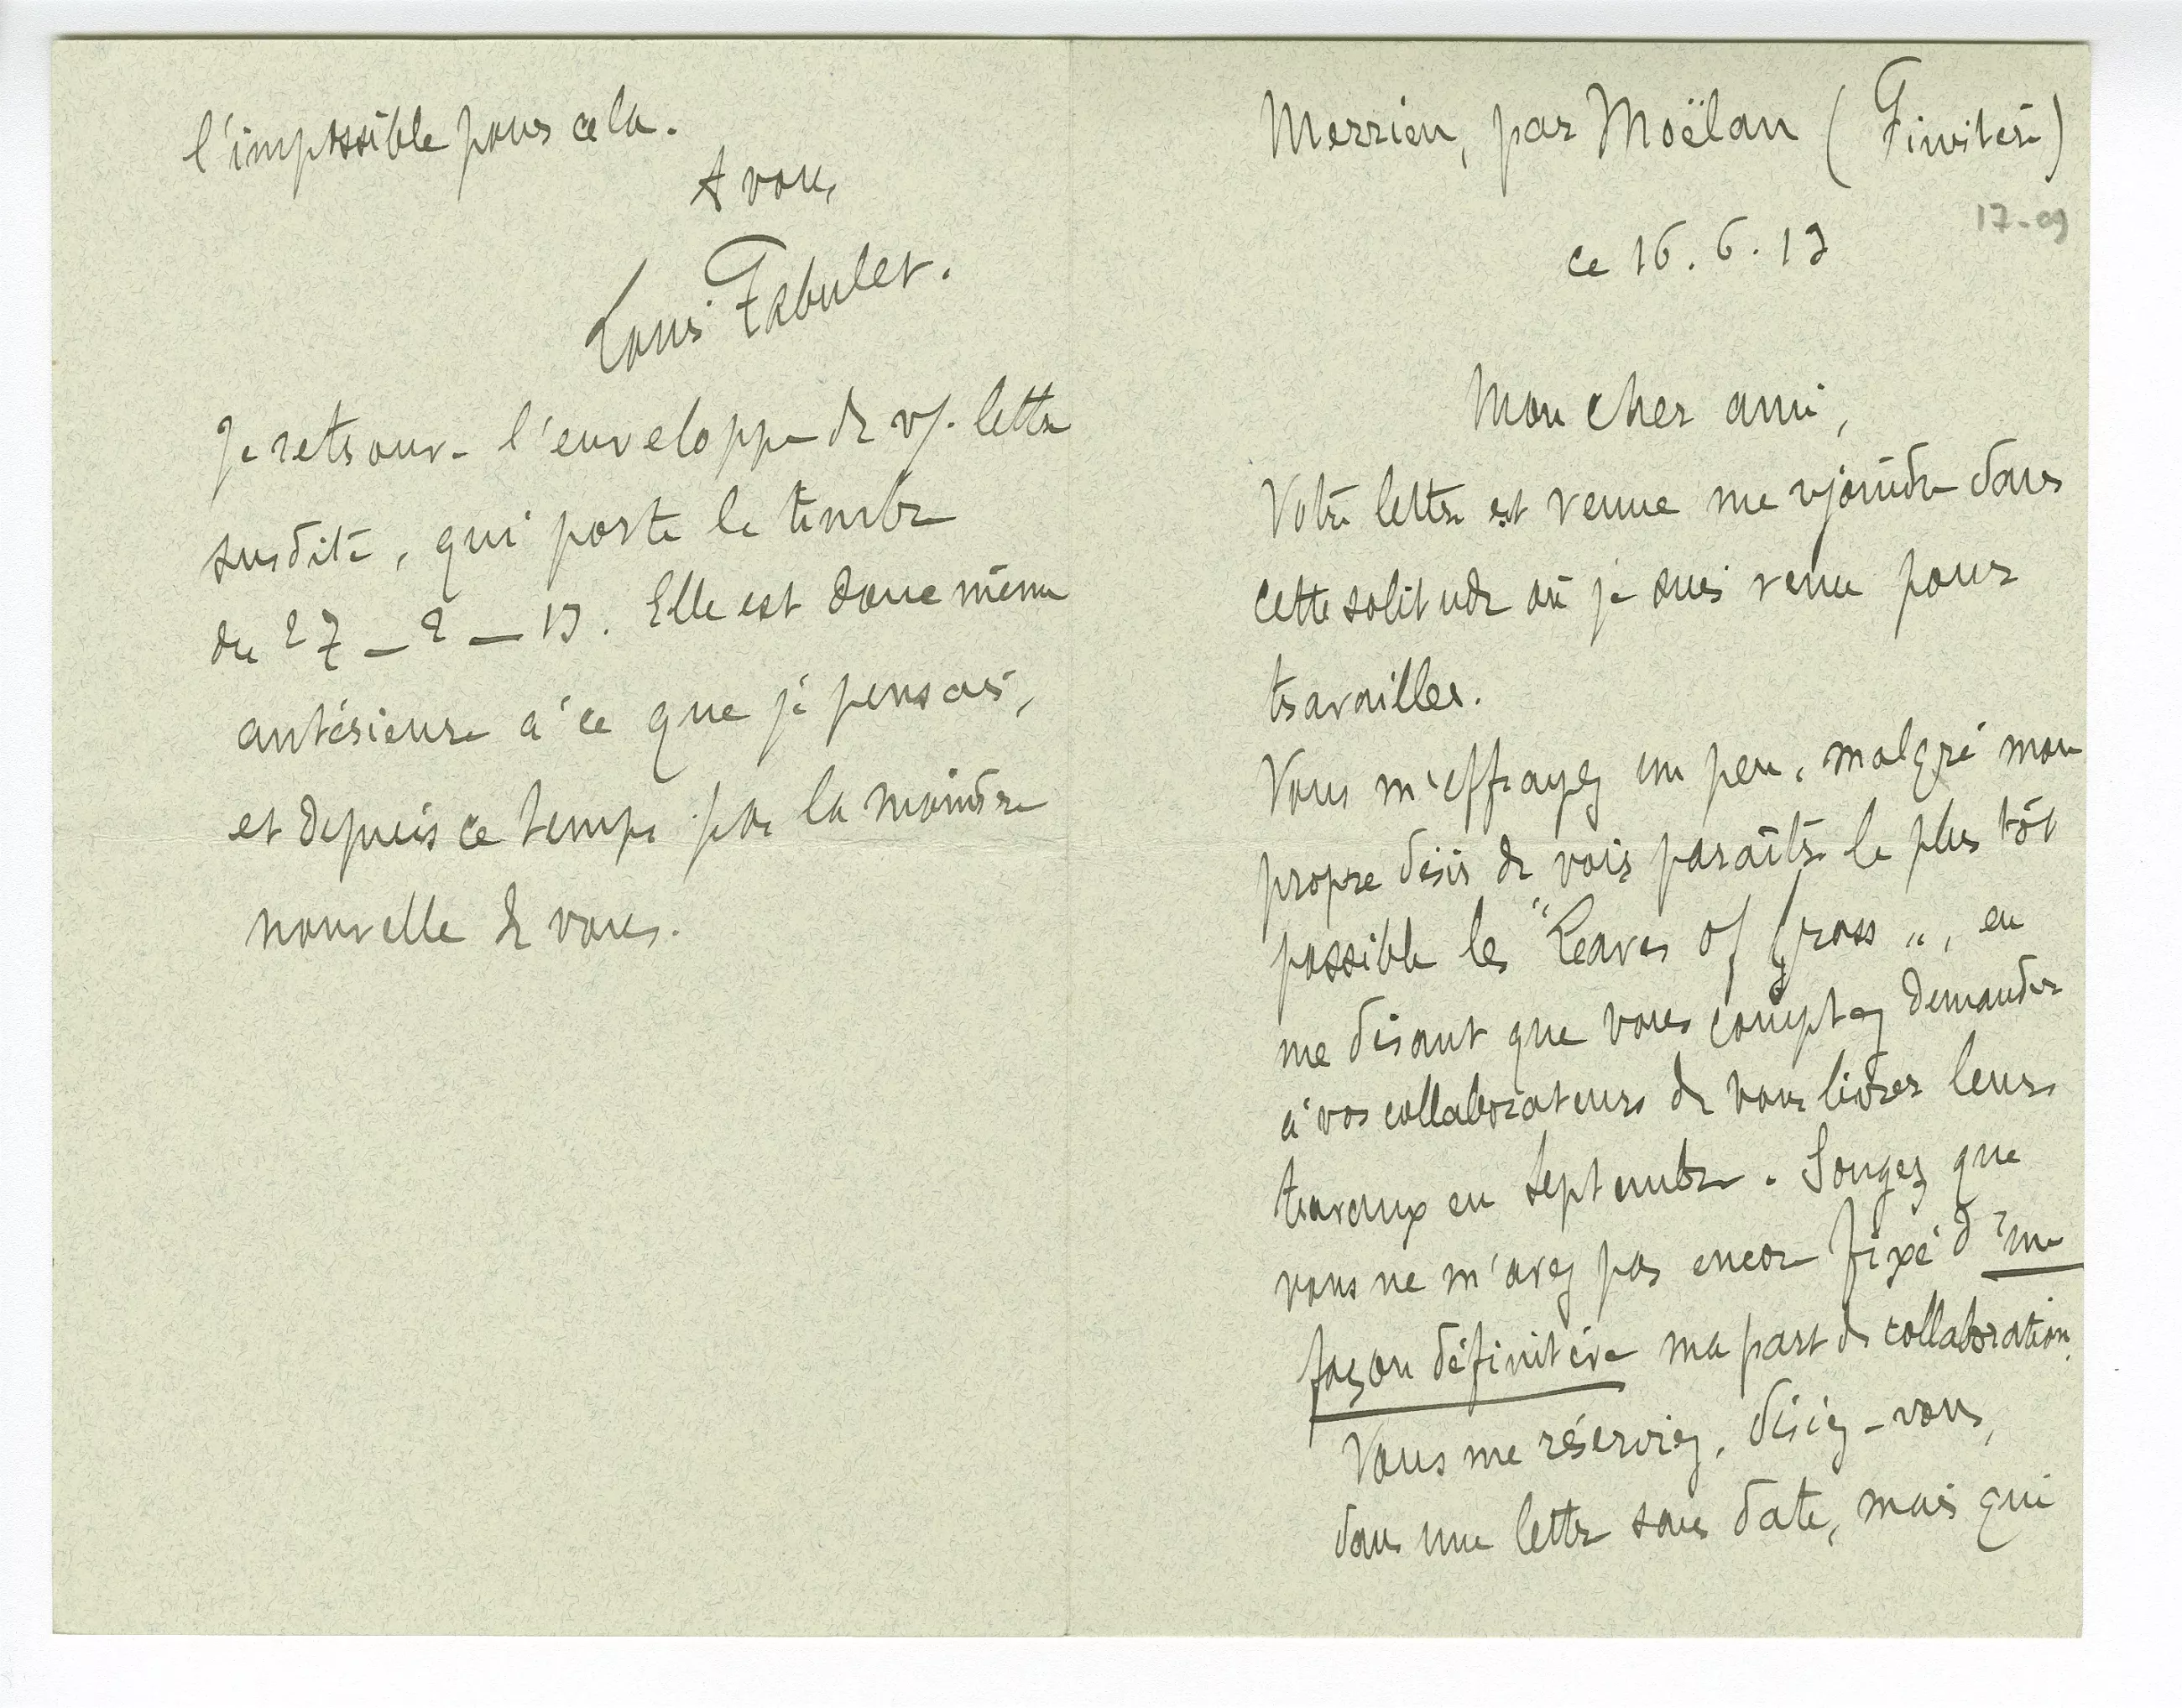 Merrien, par Moëlan (Finistère)
17-09
ce 16.6.13
Mon cher ami,
Votre lettre est venue me rejoindre dans
cette solitude où je suis venu pour
travailler.
Vous m'effrayez un peu, malgré mon
propre désir de voir paraître le plus tôt
possible les "Leaves of Grass", en
me disant que vous comptez demander
à vos collaborateurs de vous livrer leurs
travaux en septembre. Songez que
vous ne m'avez pas encore fixé d'une
façon définitive ma part de collaboration.
Vous me réserviez, disiez-vous,
dans une lettre sans date, mais qui
l'impossible pour cela.
A vous,
Louis Fabulet.
Je retrouve l'enveloppe de v/. lettre
susdite, qui porte le timbre
du 27-2-13. Elle est donc même
antérieure à ce que je pensais,
et depuis ce temps pas la moindre
nouvelle de vous.